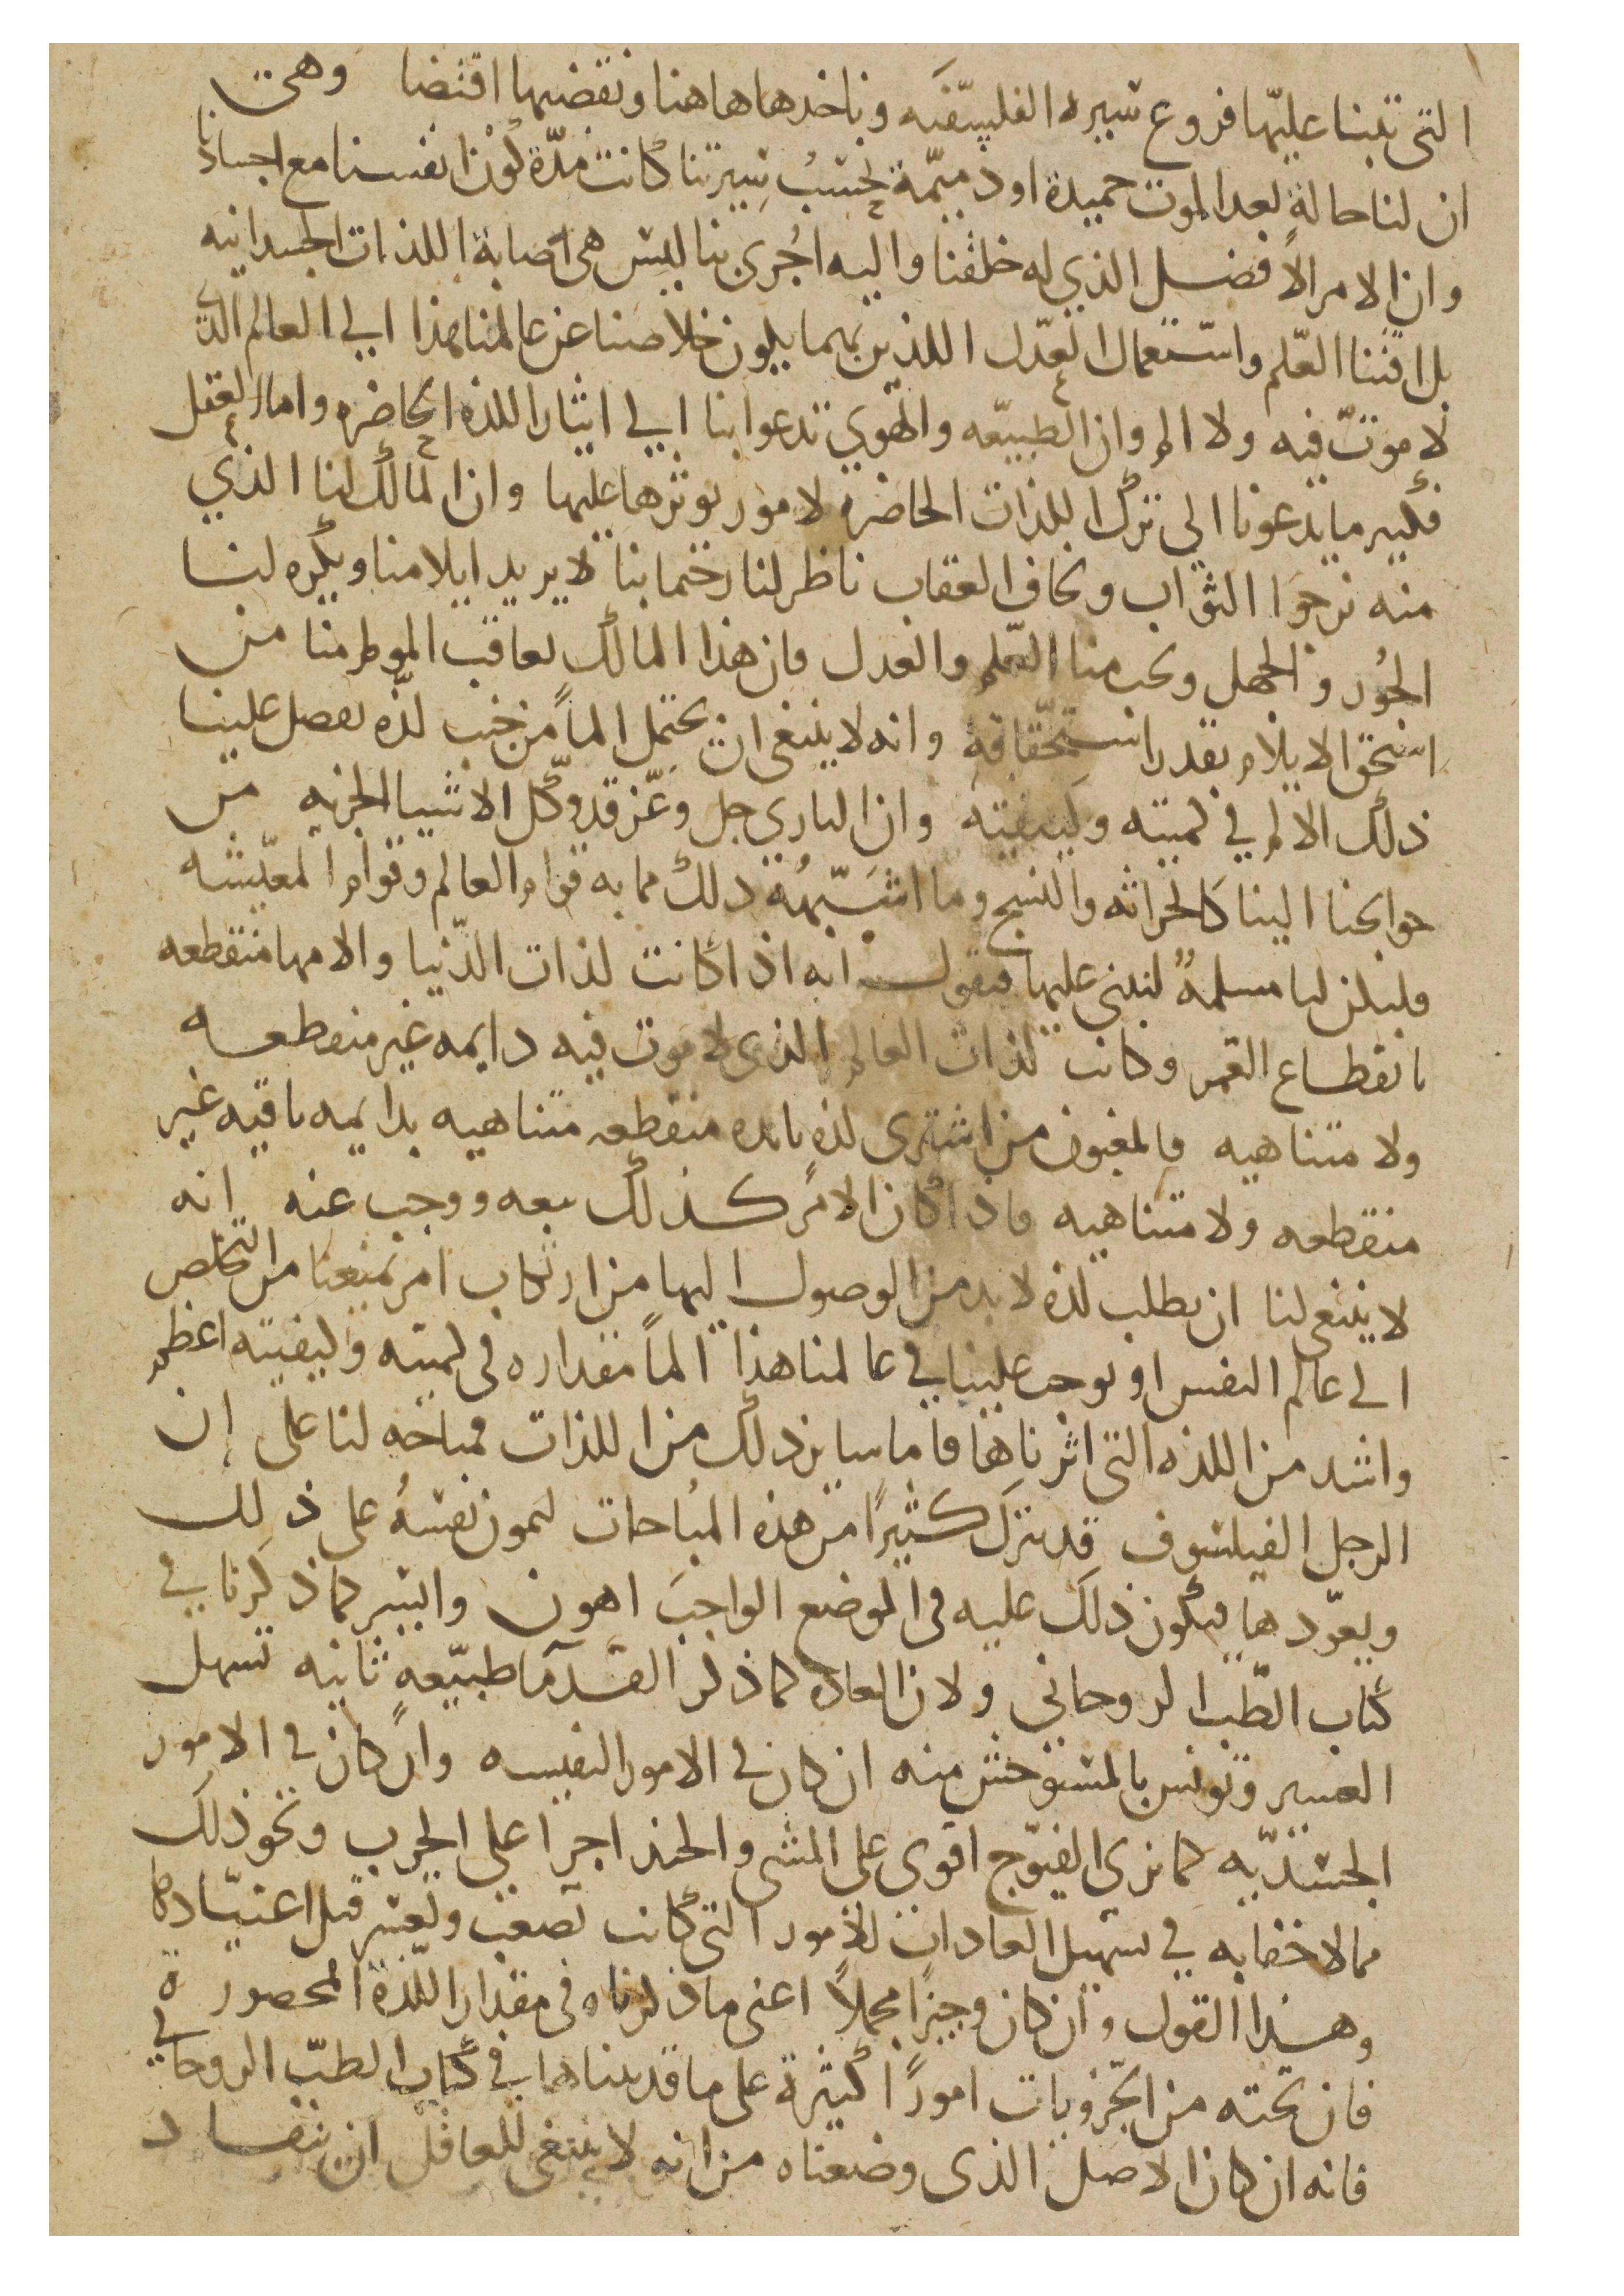 التى تبنا عليها فروع سيره الفليسفه وناخدها هاهنا ونقضبها اقتضا وهى
ان لنا حالة بعد الموت حميدة او دميمة بحسب سيرتنا كانت مدّة كون انفسنا مع اجسادنا
وان الامر الافضل الذي له خلقنا واليه اجُرى بنا ليس هى اصابة اللذات الجسدانيه
بل اقتنا العلم واستعمال العدل اللذين بهما يكون خلاصنا عن عالمنا هذا الي العالم الذى
لا موت فيه ولا الم وان الطبيعه والهوي تدعوا بنا الي ايثار اللذه الحاضره واما العقل
فكثير ما يدعونا الي ترك اللذات الحاضره لامور يوثرها عليها وان المالك لنا الذي
منه نرجوا الثواب ونخاف العقاب ناظر لنا رحيما بنا لا يريد ايلامنا ويكره لنا
الجُور والجهل ويحب منا العلم والعدل فان هذا المالك يعاقب المولم منا من
استحق الايلام بقدر استحقاقه وانه لا ينبغى ان يحتمل الماً من جنب لذّه يفضل علينا
ذلك الالم في كميته وكيفيته وان الباري جل وعّز قد وكل الاشيا الجزيه من
حوايجنا الينا كالحراثه والنسج وما اشبهُه ذلك مما به قوام العالم وقوام المعيشه
فليكن لنا مسلمهً لنبنى عليها فنقول انه اذا كانت لذات الدّنيا والامها منقطعه
بانقطاع العمر وكانت لذات العالم الذى لا موت فيه دايمه غير منقطعه
ولا متناهيه فالمغبون من اشترى لذه بايده منقطعه متناهيه بدايمه باقيه غير
منقطعه ولا متناهيه فاذا كان الامر كذلك تبعه ووجب عنه انه
لا ينبغى لنا ان نطلب لذه لا بد من الوصول اليها من ارتكاب امر يمنعنا من التخلص
الى عالم النفس او يوجب علينا في عالمنا هذا الماً مقداره فى كميته وكيفيته اعظم
واشد من اللذه التى اثرناها فاما ساير ذلك من اللذات فمباحه لنا على ان
الرجل الفيلسوف قد يترك كثيرًا من هذه المباحات ليمرن نفسهُ على ذلك
ويعوّدها فيكون ذلك عليه فى الموضع الواجب اهون وايسر كما ذكرنا في
كتاب الطّب الروحاني ولان العاده كما ذكر القدما طبيعه ثانيه تسهل
العسير وتونس بالمستوحش منه ان كان في الامور النفيسه وان كان في الامور
الجسديّه كما نرى الفيوج اقوى على المشى والجند اجرا علي الحرب ونحو ذلك
مما لا خفا به في تسهيل العادات للامور التى كانت تصعب وتعسر قبل اعتيادها
وهذا القول وان كان وجيزًا مجملاً اعنى ما ذكرناه فى مقدار اللذة المحصورة
فان تحته من الجزويات امورًا كثيرة على ما قد بيناها في كتاب الطبّ الروحاني
فانه ان كان الاصل الذى وضعناه من انه لا ينبغى للعاقل ان ينقاد